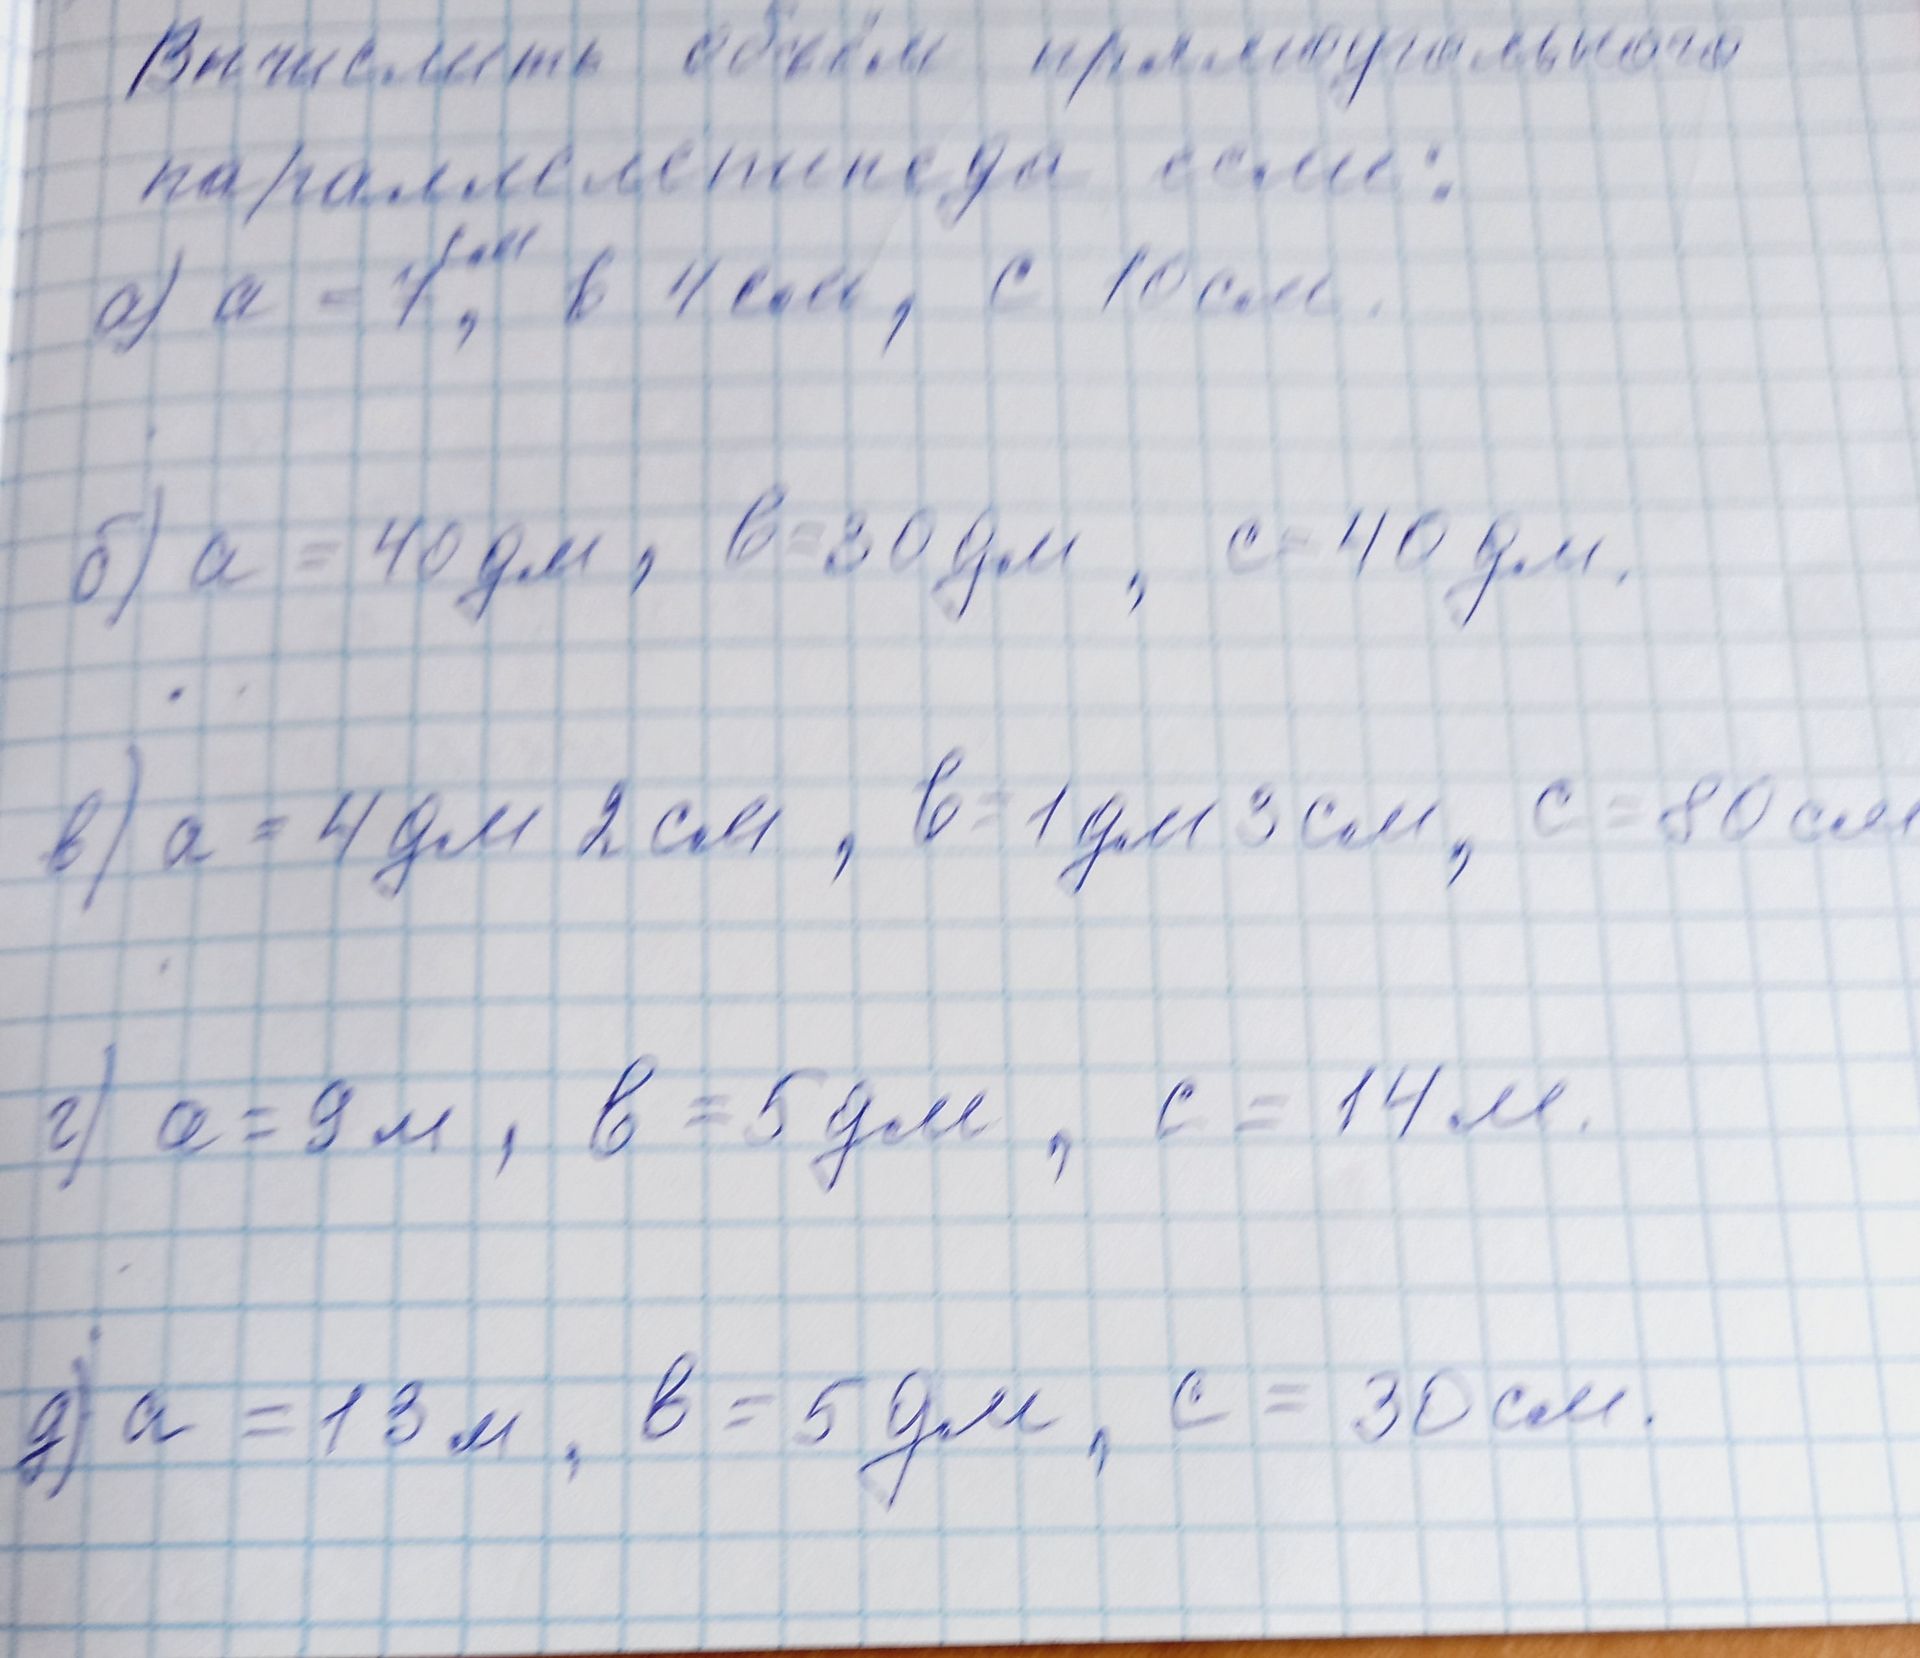 Вычислить объём прямоугольного
параллелепипеда если:
а) а = 7см, в 4см, с 10см.
б) а = 40дм, в=30дм, с=40дм.
в) а = 4дм 2см, в=1дм 3см, с=80см
г) а=9м, в=5дм, с=14м.
д) а =13м, в=5дм, с=30см.